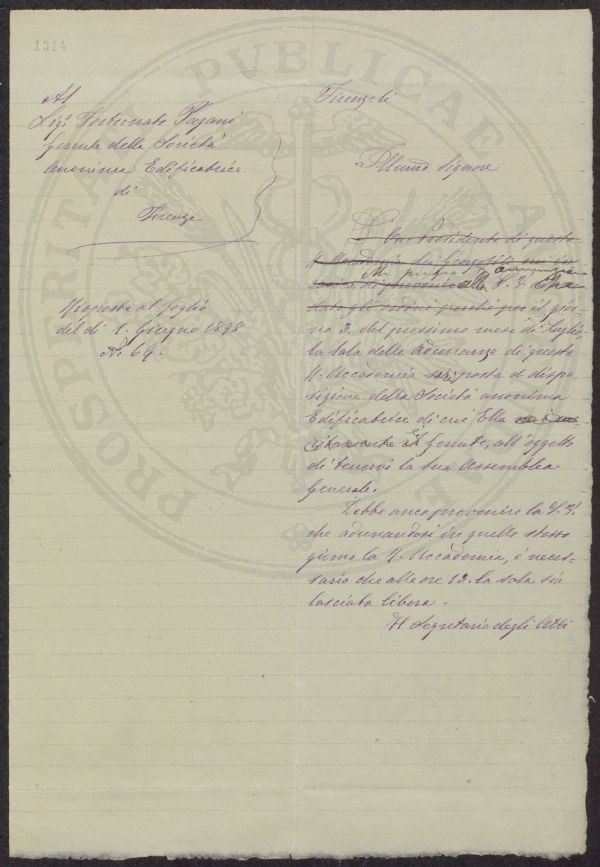 1314
Al
Sigr Fortunato Pagani
Gerente della Società
Anonima Edificatrice
di
Firenze
Risposta al foglio
del dì 1. Giugno 1898
No. 69.
Firenze li
Illmo Signore
Il Presidente di questa
R. Accademia dei Georgofili
Mi pregio
alla S. V. che
il gior-
no 3. del prossimo mese di Luglio
la Sala delle adunanze di questa
R. Accademia sarà posta a dispo-
sizione della Società anonima
Edificatrice di cui Ella
Gerente, all'oggetto
di tenervi la sua Assemblea
Generale.
Debbo anco prevenire la S. V.
che adunandosi in quello stesso
giorno la R. Accademia, è neces-
sario che alle ore 12. la sala sia
lasciata libera.
Il Segretario degli Atti
PROSPERITATI PVBLICAE AVGENDAE